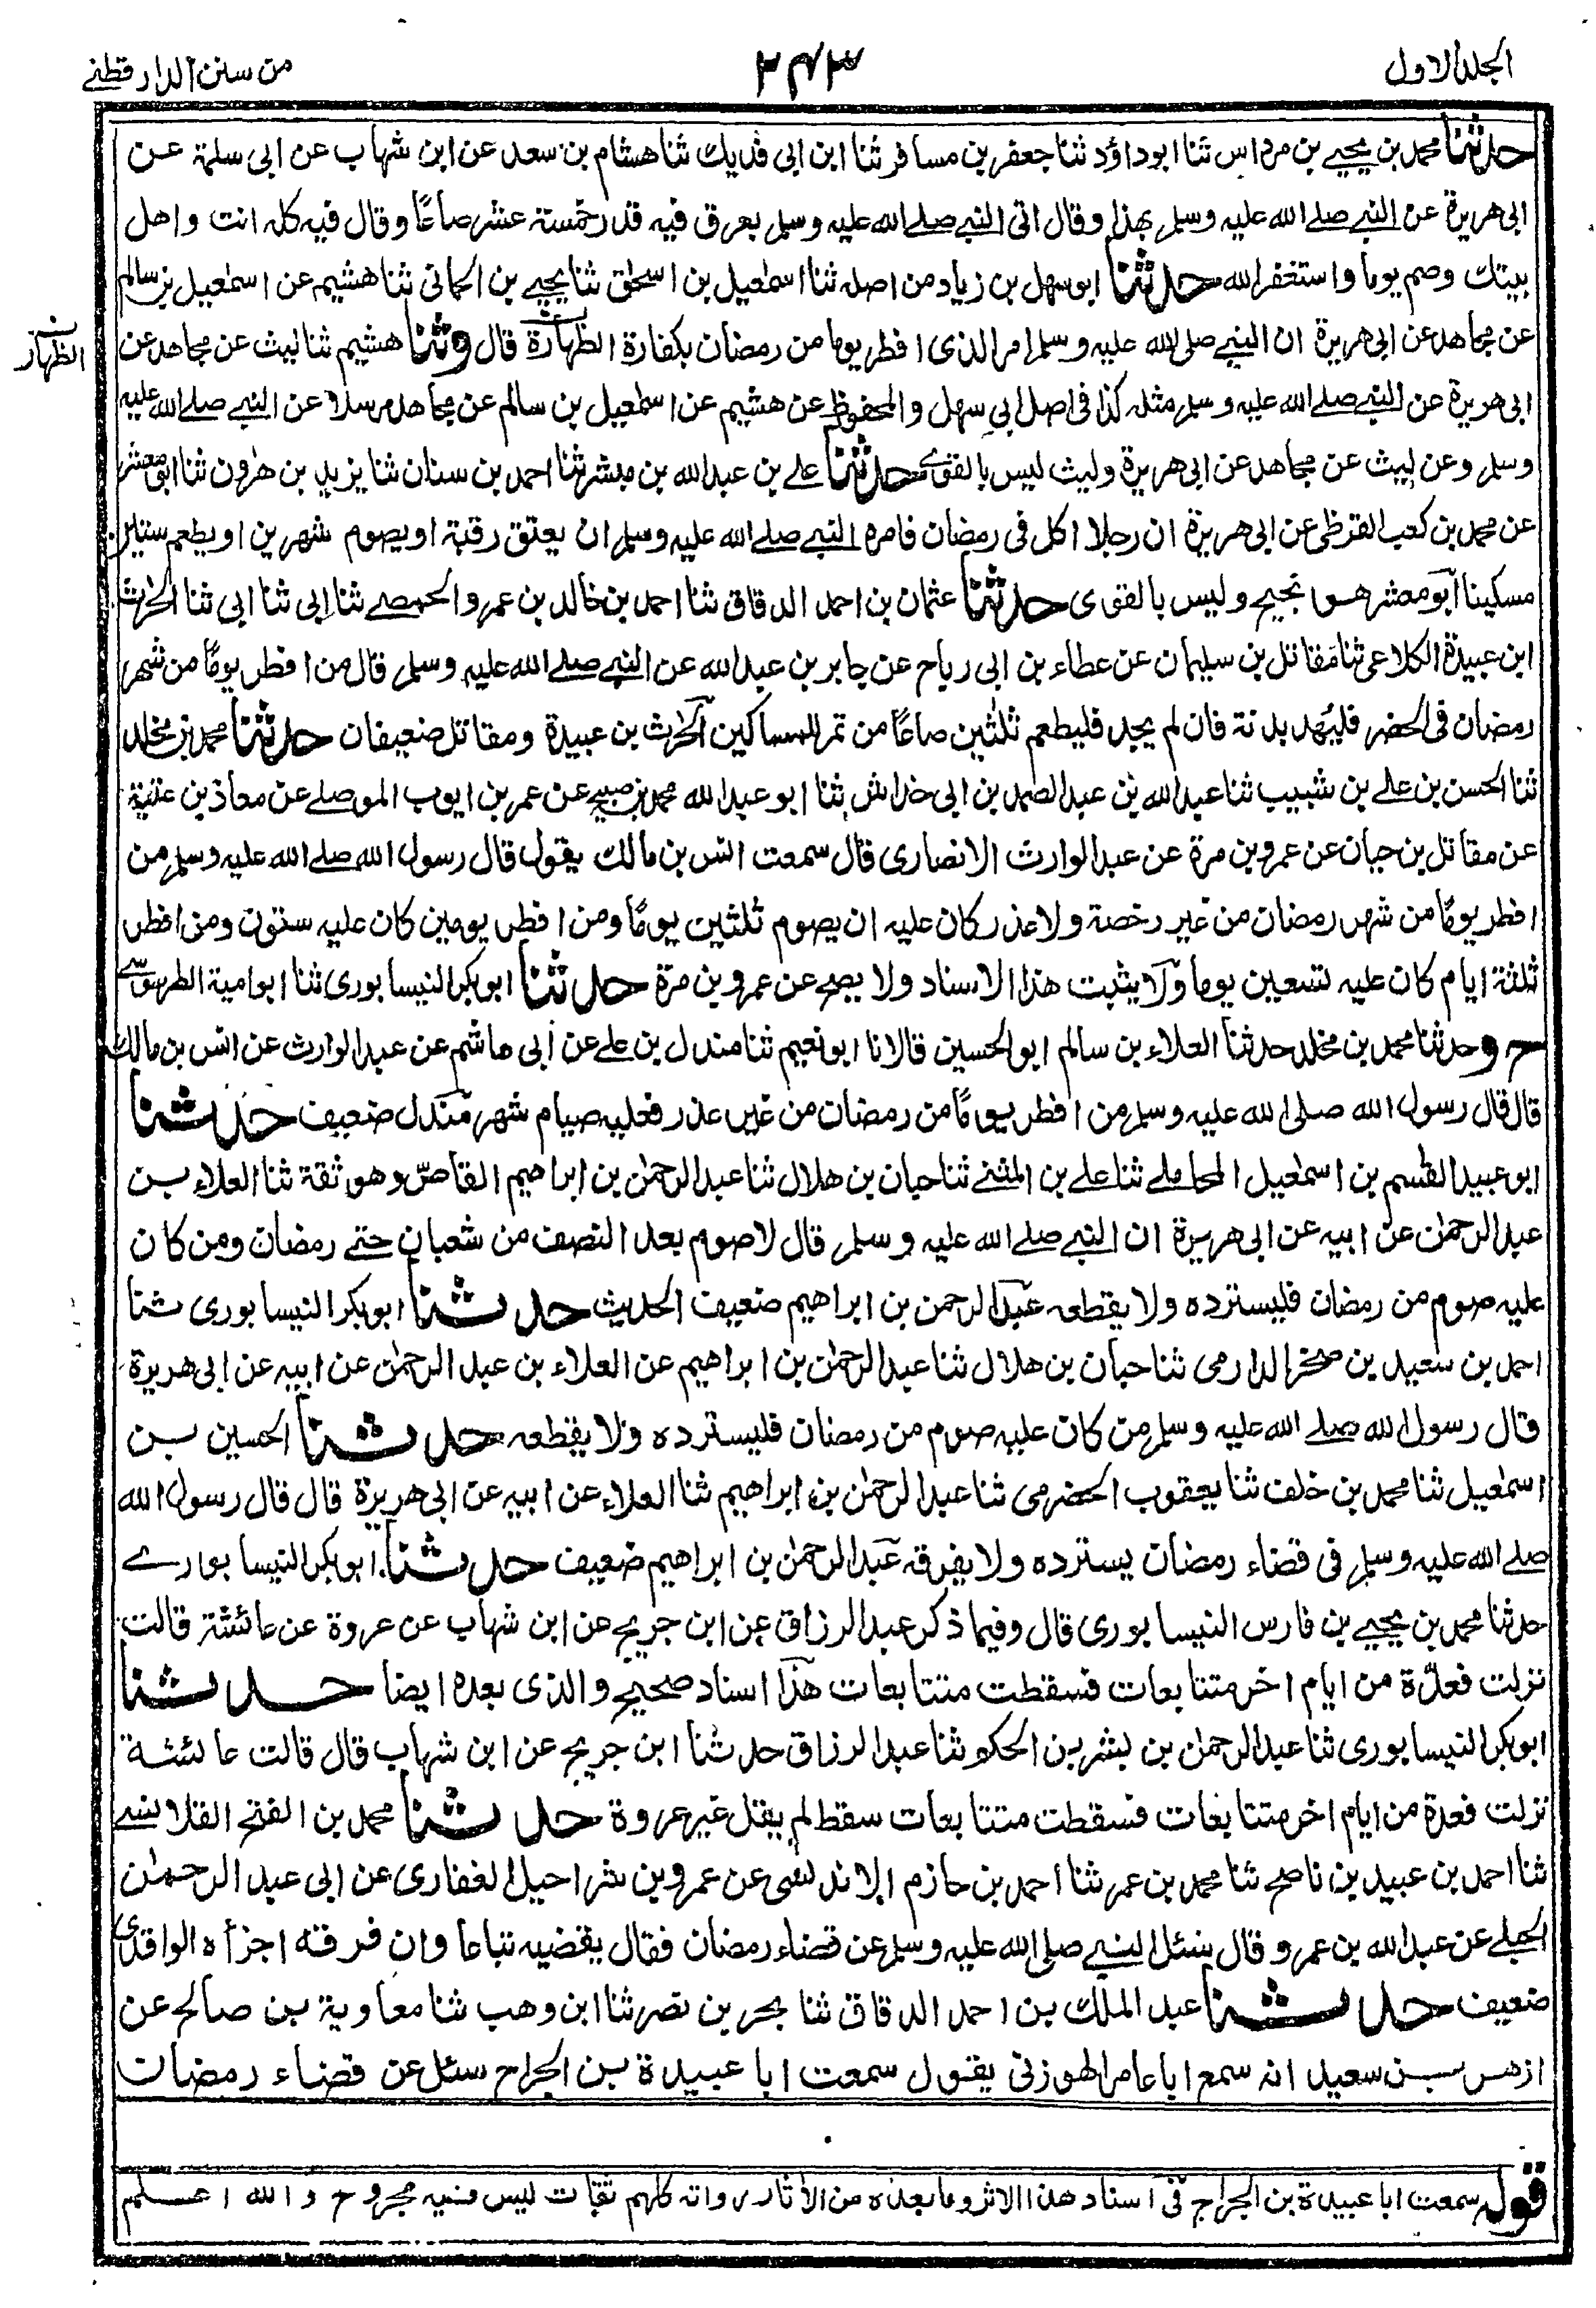 الجلد الاول
٢٤٣
من سنن الدار قطنے
حدثنا محمد بن يحيے بن مرداس ثنا ابو داؤد ثنا جعفر بن مسافر ثنا ابن ابى فديك ثنا هشام بن سعد عن ابن شهاب عن ابى سلمة عن
ابى هريرة عن النبے صلے الله عليه وسلم بهذا وقال اتى النبے صلے الله عليه وسلم بعرق فيه قدر خمسة عشر صاعًا وقال فيه كله انت واهل
بيتك وصم يوما واستغفر الله حدثنا ابو سهل بن زياد من اصله ثنا اسمٰعيل بن اسحٰق ثنا يحيے بن الحمانى ثنا هشيم عن اسمٰعيل بن سالم
عن مجاهد عن ابى هريرة ان النبے صلى الله عليه وسلم امر الذى افطر يوما من رمضان بكفارة الظهارة قال وثنا هشيم ثنا ليث عن مجاهد عن
الظهار
ابى هريرة عن النبے صلے الله عليه وسلم مثله كذا فى اصل ابى سهل والمحفوظ عن هشيم عن اسمٰعيل بن سالم عن مجاهد مرسلا عن النبے صلے الله عليه
وسلم وعن ليث عن مجاهد عن ابى هريرة وليث ليس بالقوے حدثنا علے بن عبد الله بن مبشر ثنا احمد بن سنان ثنا يزيد بن هٰرون ثنا ابو معشر
عن محمد بن كعب القرظى عن ابى هريرة ان رجلا اكل فى رمضان فامره النبے صلے الله عليه وسلم ان يعتق رقبة او يصوم شهرين او يطعم ستين
مسكينا ابو معشر هو نجيح وليس بالقوى حدثنا عثمان بن احمد الدقاق ثنا احمد بن خالد بن عمرو الحمصے ثنا ابى ثنا ابى ثنا الحٰرث
ابن عبيدة الكلاعى ثنا مقاتل بن سليمان عن عطاء بن ابى رباح عن جابر بن عبد الله عن النبے صلے الله عليه وسلم قال من افطر يومًا من شهر
رمضان فى الحضر فليُهد بدنة فان لم يجد فليطعم ثلٰثين صاعًا من تمر للمساكين الحٰرث بن عبيدة ومقاتل ضعيفان حدثنا محمد بن مخلد
ثنا الحسن بن علے بن شبيب ثنا عبد الله بن عبد الصمد بن ابى خداش ثنا ابو عبد الله محمد بن صبيح عن عمر بن ايوب الموصلے عن معاذ بن عقبة
عن مقاتل بن حيان عن عمرو بن مرة عن عبد الوارث الانصارى قال سمعت انس بن مالك يقول قال رسول الله صلے الله عليه وسلم من
افطر يومًا من شهر رمضان من غير رخصة ولا عذر كان عليه ان يصوم ثلثين يومًا ومن افطر يومين كان عليه ستون ومن افطر
ثلثة ايام كان عليه تسعين يوما ولا يثبت هذا الاسناد ولا يصح عن عمرو بن مرة حدثنا ابو بكر النيسابورى ثنا ابو امية الطرسوسے
ح وحدثنا محمد بن مخلد حدثنا العلاء بن سالم ابو الحسين قالا نا ابو نعيم ثنا مندل بن علے عن ابى هاشم عن عبد الوارث عن انس بن مالك
قال قال رسول الله صلى الله عليه وسلم من افطر يومًا من رمضان من غير عذر فعليه صيام شهر مندل ضعيف حدثنا
ابو عبيد القٰسم بن اسمٰعيل المحاملے ثنا علے بن المثنے ثنا حبان بن هلال ثنا عبد الرحمٰن بن ابراهيم القاصّ وهو ثقة ثنا العلاء بن
عبد الرحمٰن عن ابيه عن ابى هريرة ان النبے صلے الله عليه وسلم قال لا صوم بعد النصف من شعبان حتے رمضان ومن كان
عليه صوم من رمضان فليسترده ولا يقطعه عبد الرحمن بن ابراهيم ضعيف الحديث حدثنا ابو بكر النيسابورى ثنا
احمد بن سعيد بن صخر الدارمى ثنا حبان بن هلال ثنا عبد الرحمٰن بن ابراهيم عن العلاء بن عبد الرحمٰن عن ابيه عن ابى هريرة
قال رسول الله صلے الله عليه وسلم من كان عليه صوم من رمضان فليسترده ولا يقطعه حدثنا الحسين بن
اسمٰعيل ثنا محمد بن خلف ثنا يعقوب الحضرمى ثنا عبد الرحمٰن بن ابراهيم ثنا العلاء عن ابيه عن ابى هريرة قال قال رسول الله
صلے الله عليه وسلم فى قضاء رمضان يسترده ولا يفرقه عبد الرحمٰن بن ابراهيم ضعيف حدثنا ابو بكر النيسابورے
حدثنا محمد بن يحيے بن فارس النيسابورى قال وفيما ذكر عبد الرزاق عن ابن جريج عن ابن شهاب عن عروة عن عائشة قالت
نزلت فعدّة من ايام اخر متتابعات فسقطت متتابعات هذا اسناد صحيح والذى بعده ايضا حدثنا
ابو بكر النيسابورى ثنا عبد الرحمٰن بن بشر بن الحكم ثنا عبد الرزاق حدثنا ابن جريج عن ابن شهاب قال قالت عائشة
نزلت فعدة من ايام اخر متتابعات فسقطت متتابعات سقط لم يقل غير عروة حدثنا محمد بن الفتح القلانسے
ثنا احمد بن عبيد بن ناصح ثنا محمد بن عمر ثنا احمد بن حازم الاندلسى عن عمرو بن شراحيل الغفارى عن ابى عبد الرحمٰن
الحبلے عن عبد الله بن عمرو قال سئل النبے صلى الله عليه وسلم عن قضاء رمضان فقال يقضيه تباعا وان فرقه اجزأه الواقدى
ضعيف حدثنا عبد الملك بن احمد الدقاق ثنا بحر بن نصر ثنا ابن وهب ثنا معاوية بن صالح عن
ازهر بن سعيد انه سمع ابا عامر الهوزنى يقول سمعت ابا عبيدة بن الجراح سئل عن قضاء رمضان
قوله سمعت ابا عبيدة بن الجراح فى اسناد هذا الاثر وما بعده من الآثار رواته كلهم ثقات ليس فيه مجروح والله اعلم